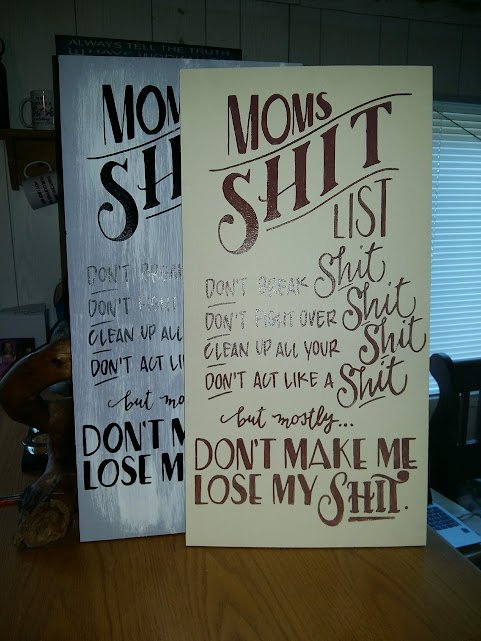 ALWAYS TELL THE TRUTH
MOMS
SHIT
LIST
DON'T BREAK Shit
DON'T FIGHT OVER Shit
CLEAN UP ALL YOUR Shit
DON'T ACT LIKE A Shit
but mostly...
DON'T MAKE ME
LOSE MY SHIT.
MOM
SH
DON'T BREAK
DON'T FIGHT
CLEAN UP ALL
DON'T ACT LI
but mo
DON'T M
LOSE M